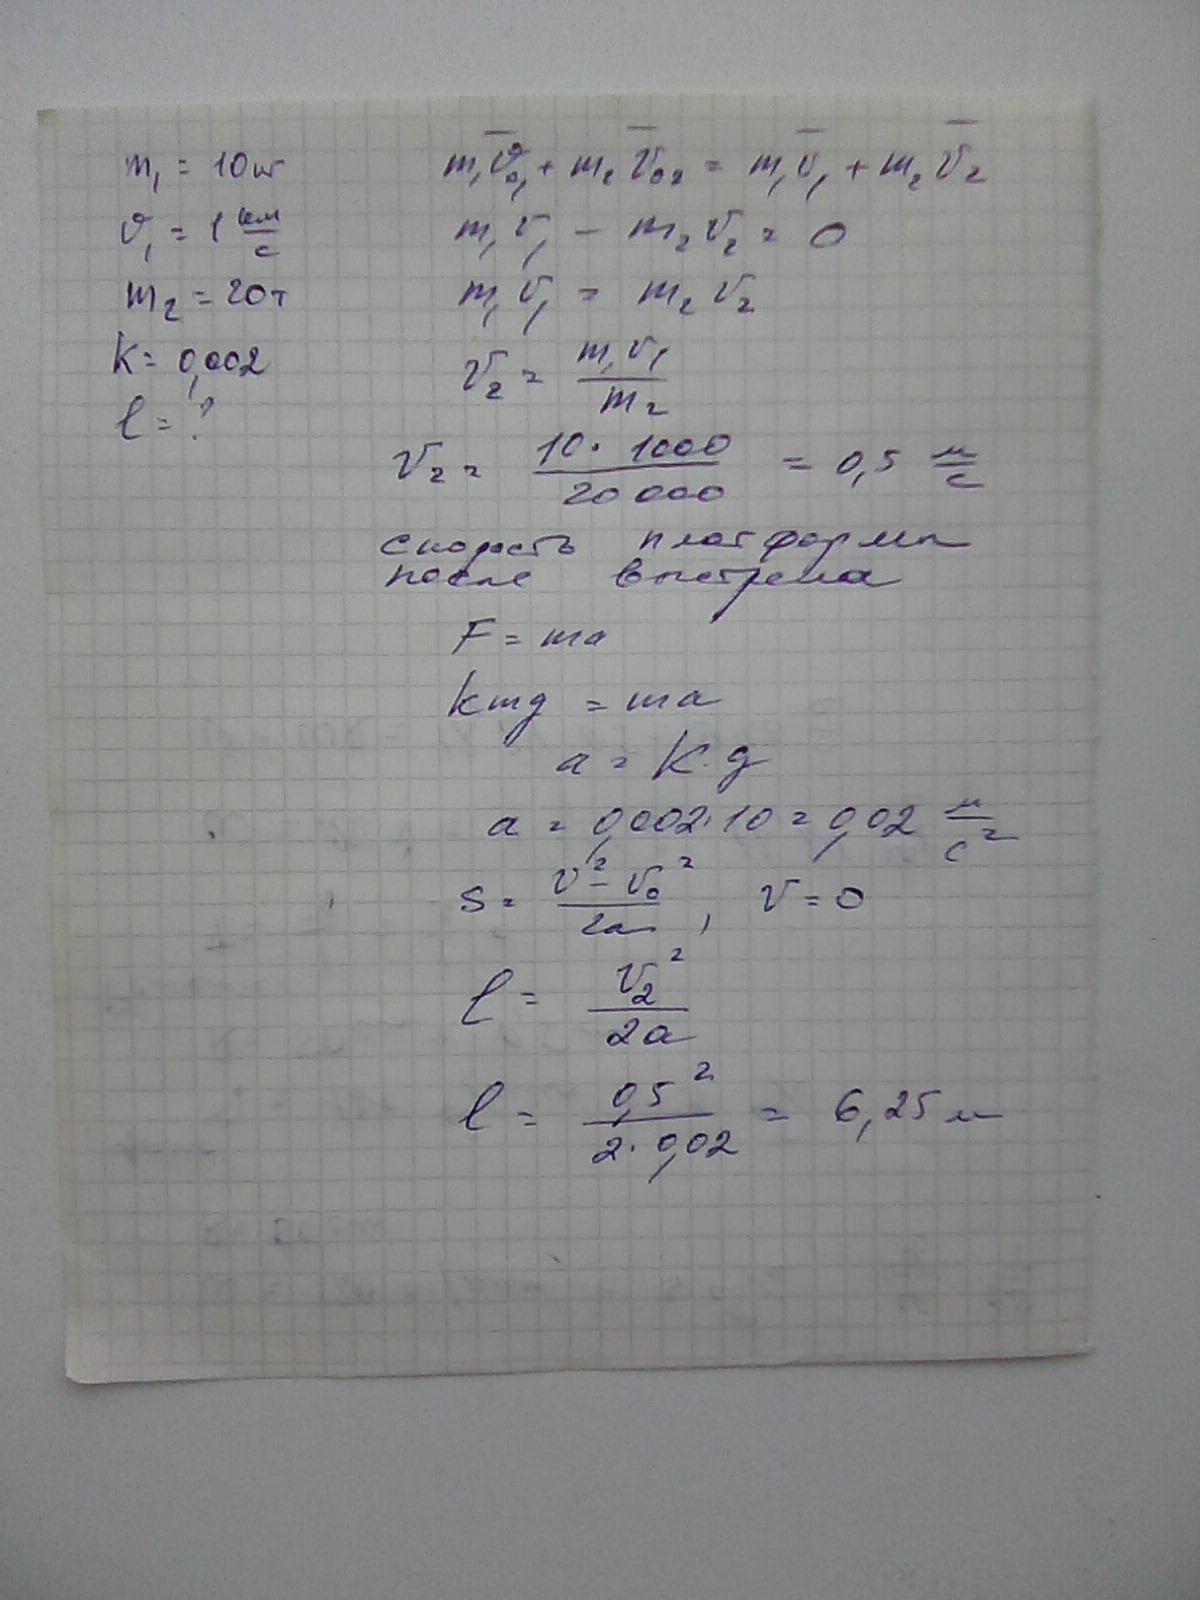 m₁ = 10 кг
ϑ₁ = 1 км/с
m₂ = 20 т
k = 0,002
l = ?
m₁ϑ̅₀₁ + m₂v̅₀₂ = m₁v̅₁ + m₂v̅₂
m₁v₁ – m₂v₂ = 0
m₁v₁ = m₂v₂
v₂ = m₁v₁/m₂
v₂ = 10·1000/20000 = 0,5 м/с
скорость платформы
после выстрела
F = ma
kmg = ma
a = k·g
a = 0,002·10 = 0,02 м/с²
S = v² – v₀²/2a, v = 0
l = v₂²/2a
l = 0,5²/2·0,02 = 6,25 м